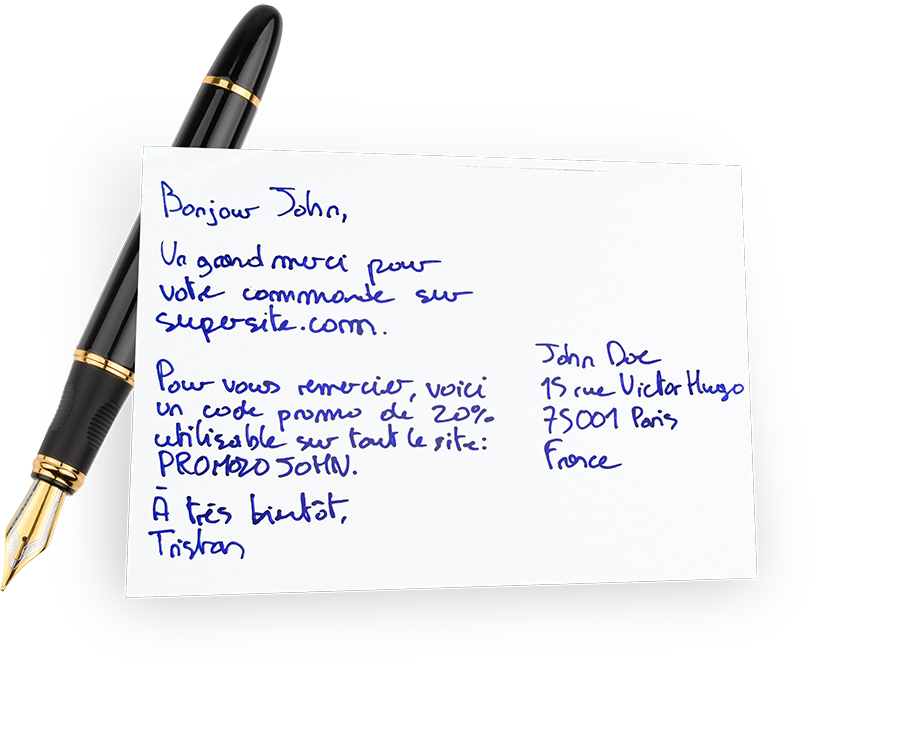 Bonjour John,
Un grand merci pour
votre commande sur
supersite.com.
Pour vous remercier, voici
un code promo de 20%
utilisable sur tout le site:
PROMO20JOHN.
À très bientôt,
Tristan
John Doe
15 rue Victor Hugo
75001 Paris
France